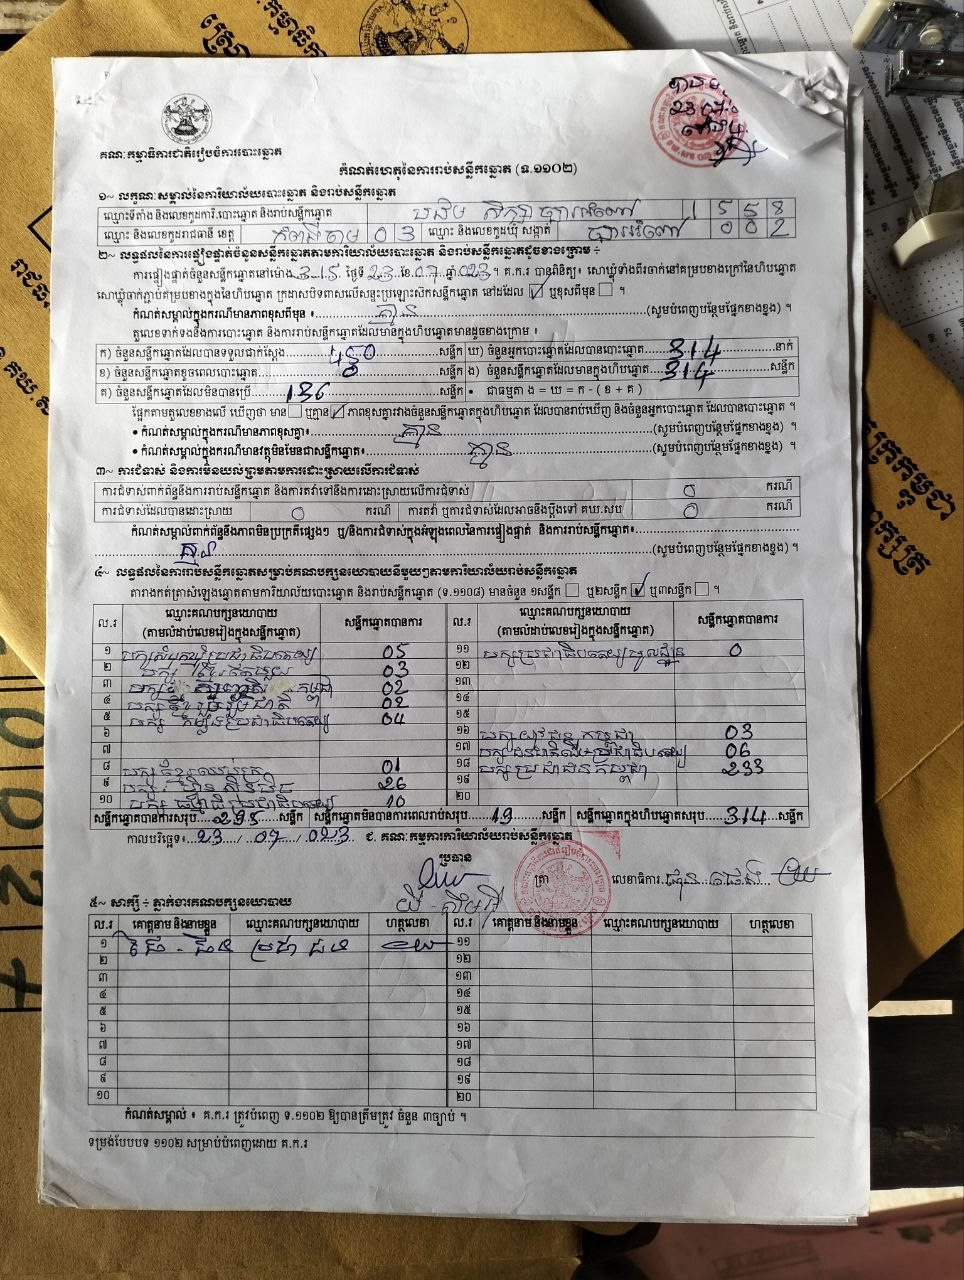 គណៈកម្មាធិការជាតិរៀបចំការបោះឆ្នោត
កំណត់ហេតុនៃការរាប់សន្លឹកឆ្នោត (ទ.១១០២)
១~ លក្ខណៈសម្គាល់នៃការិយាល័យបោះឆ្នោត និងរាប់សន្លឹកឆ្នោត
ឈ្មោះទីតាំង និងលេខកូដការិ.បោះឆ្នោត និងរាប់សន្លឹកឆ្នោត 1 5 5 8
ឈ្មោះ និងលេខកូដរាជធានី ខេត្ត កំពង់ចាម 0 3 ឈ្មោះ និងលេខកូដឃុំ សង្កាត់ 0 0 2
២~ លទ្ធផលនៃការផ្ទៀងផ្ទាត់ចំនួនសន្លឹកឆ្នោតតាមការិយាល័យបោះឆ្នោត និងរាប់សន្លឹកឆ្នោតដូចខាងក្រោម ÷
ការផ្ទៀងផ្ទាត់ចំនួនសន្លឹកឆ្នោតនៅម៉ោង 3:15 ថ្ងៃទី 23 ខែ 07 ឆ្នាំ 023 ។ គ.ក.រ បានពិនិត្យ៖ សោឃ្លុំទាំងពីរចាក់នៅគម្របខាងក្រៅនៃហិបឆ្នោត
សោឃ្លុំចាក់ភ្ជាប់គម្របខាងក្នុងនៃហិបឆ្នោត ក្រដាសបិទពាសលើសន្ទះប្រឡោះស៊កសន្លឹកឆ្នោត នៅដដែល ☑ ឬខុសពីមុន ☐ ។
កំណត់សម្គាល់ក្នុងករណីមានភាពខុសពីមុន ៖ គ្មាន (សូមបំពេញបន្ថែមផ្នែកខាងខ្នង) ។
តួលេខទាក់ទងនឹងការបោះឆ្នោត និងការរាប់សន្លឹកឆ្នោតដែលមានក្នុងហិបឆ្នោតមានដូចខាងក្រោម ៖
ក) ចំនួនសន្លឹកឆ្នោតដែលបានទទួលជាក់ស្តែង 450 សន្លឹក ឃ) ចំនួនអ្នកបោះឆ្នោតដែលបានបោះឆ្នោត 314 នាក់
ខ) ចំនួនសន្លឹកឆ្នោតខូចពេលបោះឆ្នោត 0 សន្លឹក ង) ចំនួនសន្លឹកឆ្នោតដែលមានក្នុងហិបឆ្នោត 314 សន្លឹក
គ) ចំនួនសន្លឹកឆ្នោតដែលមិនបានប្រើ 136 សន្លឹក • ជាធម្មតា ង = ឃ = ក - ( ខ + គ )
ផ្អែកតាមតួលេខខាងលើ ឃើញថា មាន ☐ ឬគ្មាន ☑ ភាពខុសគ្នារវាងចំនួនសន្លឹកឆ្នោតក្នុងហិបឆ្នោត ដែលបានរាប់ឃើញ និងចំនួនអ្នកបោះឆ្នោត ដែលបានបោះឆ្នោត ។
• កំណត់សម្គាល់ក្នុងករណីមានភាពខុសគ្នា៖ គ្មាន (សូមបំពេញបន្ថែមផ្នែកខាងខ្នង) ។
• កំណត់សម្គាល់ក្នុងករណីមានវត្ថុមិនមែនជាសន្លឹកឆ្នោត៖ គ្មាន (សូមបំពេញបន្ថែមផ្នែកខាងខ្នង) ។
៣~ ការជំទាស់ និងការមិនយល់ព្រមតាមការដោះស្រាយលើការជំទាស់
ការជំទាស់ពាក់ព័ន្ធនឹងការរាប់សន្លឹកឆ្នោត និងការតវ៉ាទៅនឹងការដោះស្រាយលើការជំទាស់ 0 ករណី
ការជំទាស់ដែលបានដោះស្រាយ 0 ករណី ការតវ៉ា ឬការជំទាស់ដែលអាចនឹងប្តឹងទៅ គឃ.សប 0 ករណី
កំណត់សម្គាល់ពាក់ព័ន្ធនឹងភាពមិនប្រក្រតីផ្សេងៗ ឬ/និងការជំទាស់ក្នុងអំឡុងពេលនៃការផ្ទៀងផ្ទាត់ និងការរាប់សន្លឹកឆ្នោត៖
គ្មាន (សូមបំពេញបន្ថែមផ្នែកខាងខ្នង) ។
៤~ លទ្ធផលនៃការរាប់សន្លឹកឆ្នោតសម្រាប់គណបក្សនយោបាយនីមួយៗតាមការិយាល័យរាប់សន្លឹកឆ្នោត
តារាងកត់ត្រាសំឡេងឆ្នោតតាមការិយាល័យបោះឆ្នោត និងរាប់សន្លឹកឆ្នោត (ទ.១១០៨) មានចំនួន ១សន្លឹក ☐ ឬ២សន្លឹក ☑ ឬ៣សន្លឹក ☐ ។
ល.រ ឈ្មោះគណបក្សនយោបាយ (តាមលំដាប់លេខរៀងក្នុងសន្លឹកឆ្នោត) សន្លឹកឆ្នោតបានការ ល.រ ឈ្មោះគណបក្សនយោបាយ (តាមលំដាប់លេខរៀងក្នុងសន្លឹកឆ្នោត) សន្លឹកឆ្នោតបានការ
១ 05 ១១ 0
២ បក្សខ្មែរតែមួយ 03 ១២
៣ 02 ១៣
៤ បក្សខ្មែររួបរួមជាតិ 02 ១៤
៥ បក្ស កម្លាំងប្រជាធិបតេយ្យ 04 ១៥
៦ ១៦ បក្សយុវជនកម្ពុជា 03
៧ ១៧ 06
៨ បក្សខ្មែរឈប់ក្រ 01 ១៨ បក្សប្រជាជនកម្ពុជា 233
៩ បក្សហ៊្វុនស៊ិនប៉ិច 26 ១៩
១០ បក្សធម្មាធិបតេយ្យ 10 ២០
សន្លឹកឆ្នោតបានការសរុប 295 សន្លឹក សន្លឹកឆ្នោតមិនបានការពេលរាប់សរុប 19 សន្លឹក សន្លឹកឆ្នោតក្នុងហិបឆ្នោតសរុប 314 សន្លឹក
កាលបរិច្ឆេទ៖ 23 / 07 / 023 ជ. គណៈកម្មការការិយាល័យរាប់សន្លឹកឆ្នោត
ប្រធាន
ត្រា លេខាធិការ
៥~ សាក្សី ÷ ភ្នាក់ងារគណបក្សនយោបាយ
ល.រ គោត្តនាម និងនាមខ្លួន ឈ្មោះគណបក្សនយោបាយ ហត្ថលេខា ល.រ គោត្តនាម និងនាមខ្លួន ឈ្មោះគណបក្សនយោបាយ ហត្ថលេខា
១ ប្រជាជន ១១
២ ១២
៣ ១៣
៤ ១៤
៥ ១៥
៦ ១៦
៧ ១៧
៨ ១៨
៩ ១៩
១០ ២០
កំណត់សម្គាល់ ៖ គ.ក.រ ត្រូវបំពេញ ទ.១១០២ ឱ្យបានត្រឹមត្រូវ ចំនួន ៣ច្បាប់ ។
ទម្រង់បែបបទ ១១០២ សម្រាប់បំពេញដោយ គ.ក.រ